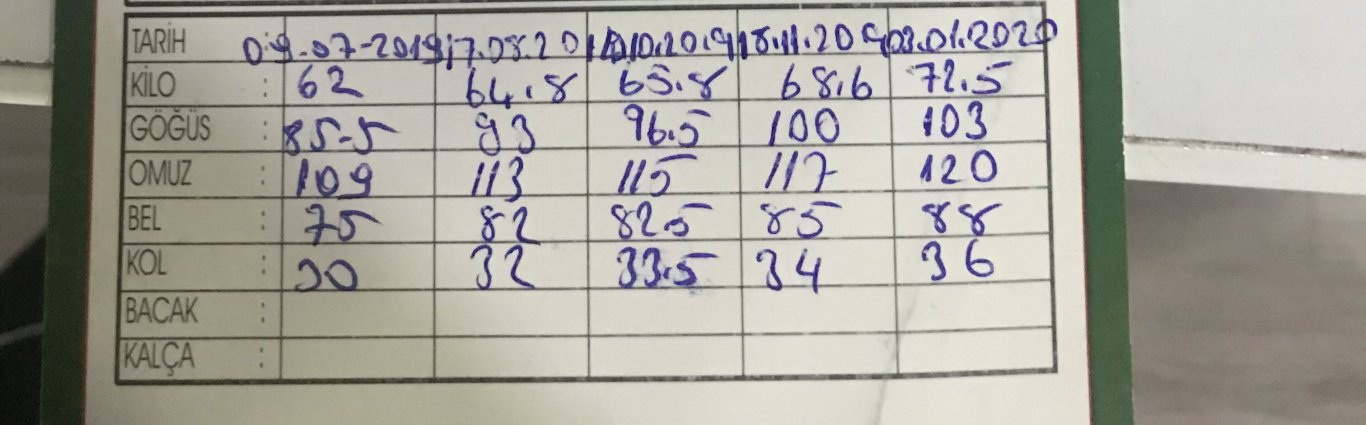 TARİH 09.07-2019 17.08.20 10.10.2019 18.11.209 03.01.2020
KİLO : 62 64.8 65.8 68.6 72.5
GÖĞÜS : 85-5 93 96.5 100 103
OMUZ : 109 113 115 117 120
BEL : 75 82 82.5 85 88
KOL : 30 32 33.5 34 36
BACAK :
KALÇA :